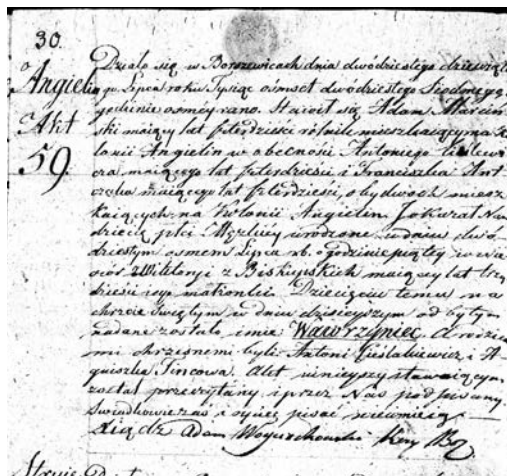 30.
Angielin
Akt
59.
Działo się w Borszewicach dnia dwódziestego dziewiąte
go Lipca roku Tysiąc osmset dwódziestego Siodmego o
godzinie osmey rano. Stawił się Adam Marcin
ski maiący lat czterdzieści rólnik mieszkaiący na Ko
lonii Angielin w obecności Antoniego
cza maiącego lat czterdzieści i Franciszka Ant
czaka maiącego lat czterdzieści, obydwoch miesz
kaiących na Kolonii Angielin. Jokazał Nam
dziecię płci Męzkiey urodzone w dniu dwó
dziestym osmem Lipca rb. o godzinie piątey w wie
czór z Wiktoryi z Biskupskich maiący lat trzy
dzieści iego małżonki. Dziecięciu temu na
chrzcie świętym w dniu dzisieyszym odbytym
nadane zostało imie Wawrzyniec. a rodzica
mi chrzesnemi byli Antoni Cieślakiewicz i A
gniszka Tincowa. Akt ninieyszy stawaiącym
został przeczytany i przez Nas podpisany
Swiadkowie zaś i oyciec pisać nieumieią
Xiądz Adam